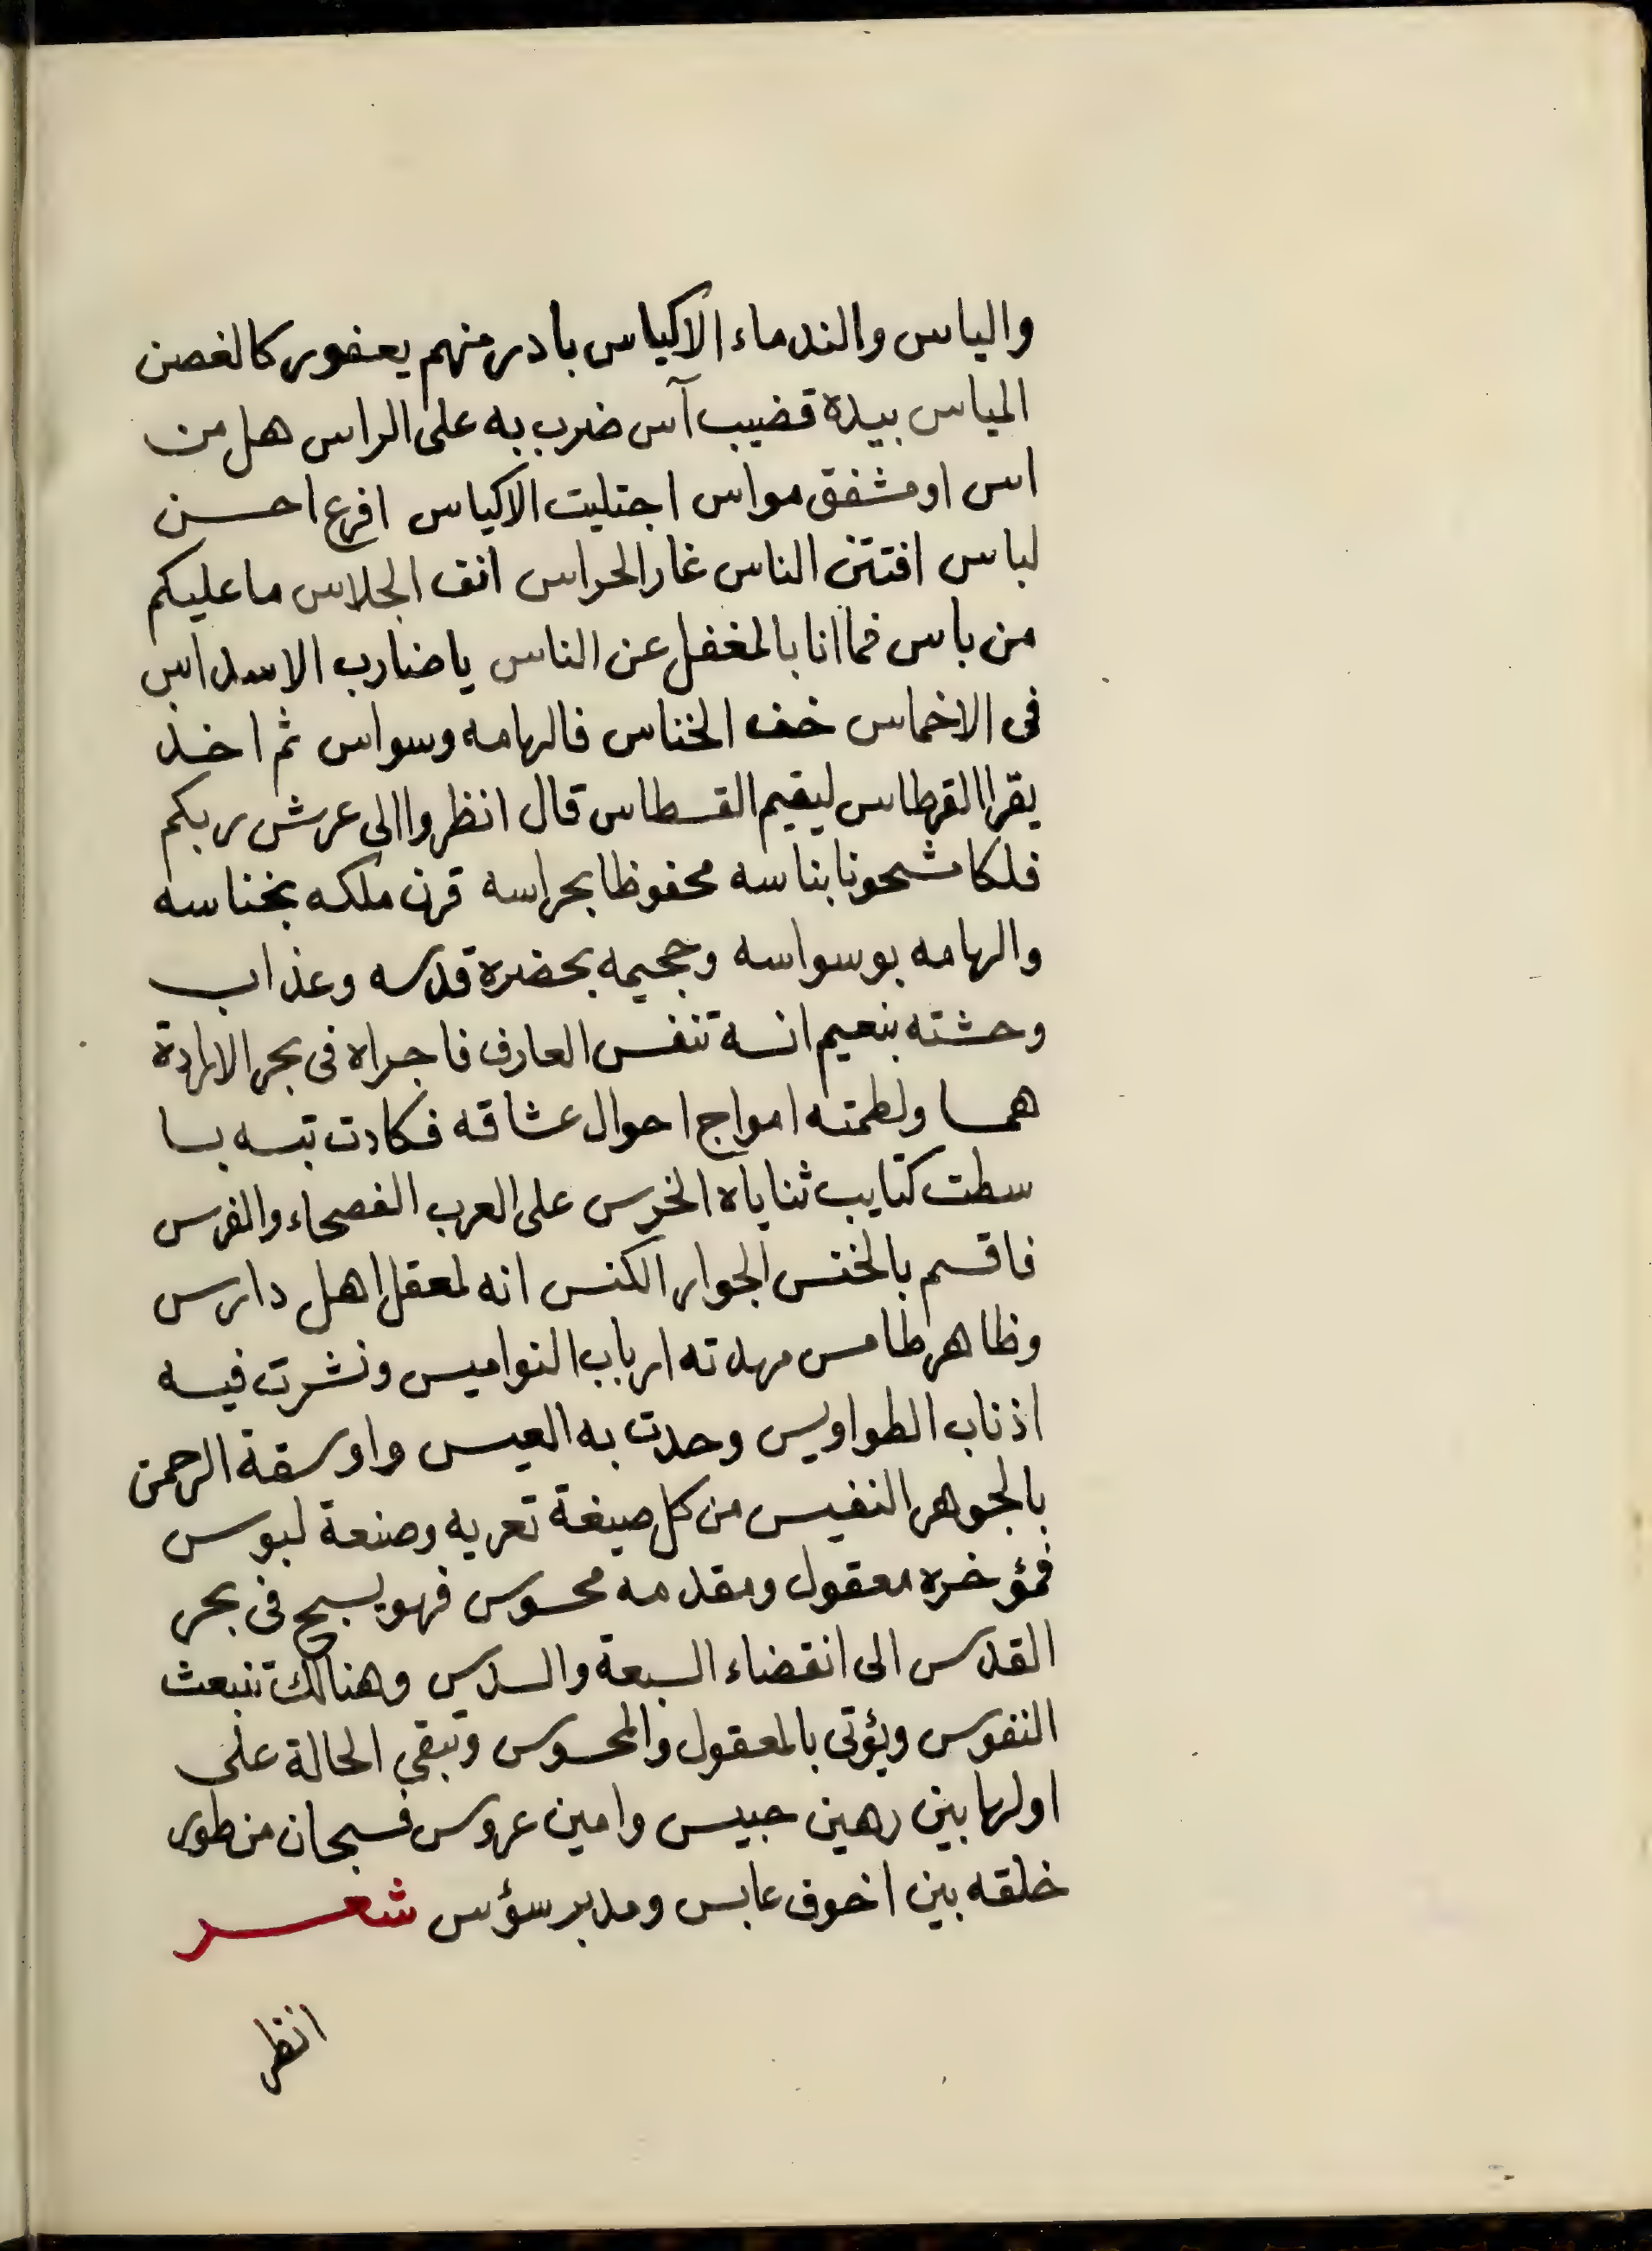 والياس والندماء الاكياس بادر منهم يعفور كالغصن
المياس بيده قضيب آس ضرب به على الراس هل من
اس او مشفق مواس اجتليت الاكياس افرع احسن
لباس افتتن الناس غار الحراس انف الجلاس ما عليكم
من باس فما انا بالمغفل عن الناس يا ضارب الاسداس
فى الاخماس خف الخناس فالهامه وسواس ثم اخذ
يقرا القرطاس ليقيم القسطاس قال انظروا الى عرش ربكم
فلكا مشحونا بناسه محفوظا بحراسه قرن ملكه بخناسه
والهامه بوسواسه وجحيمه بحضرة قدسه وعذاب
وحشته بنعيم انسه تنفس العارف فاجراه فى بحر الارادة
همسا ولطمته امواج احوال عشاقه فكادت تبسه بسا
سطت كتايب ثناياه الخرس على العرب الفصحاء والفرس
فاقسم بالخنس الجوار الكنس انه لمعقل اهل دارس
وظاهر طامس مهدته ارباب النواميس ونشرت فيه
اذناب الطواويس وحدت به العيس واوسقة الرحمن
بالجوهر النفيس من كل صيغة تعريه وصنعة لبوس
فمؤخره معقول ومقدمه محسوس فهو يسبح فى بحر
القدس الى انقضاء السبعة والسدس وهنالك تنبعث
النفوس ويؤتى بالمعقول والمحسوس وتبقى الحالة على
اولها بين رهين حبيس وامين عروس فسبحان من طور
خلقه بين اخوف عابس ومدبر سؤس شعر
انظر